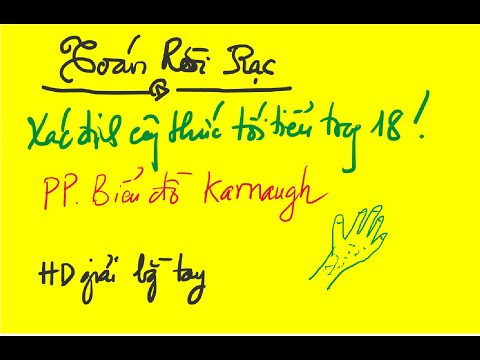 Toán Rời Rạc
Xác định công thức tối tiểu trong 18!
PP. Biểu đồ Karnaugh
HD giải bằng tay